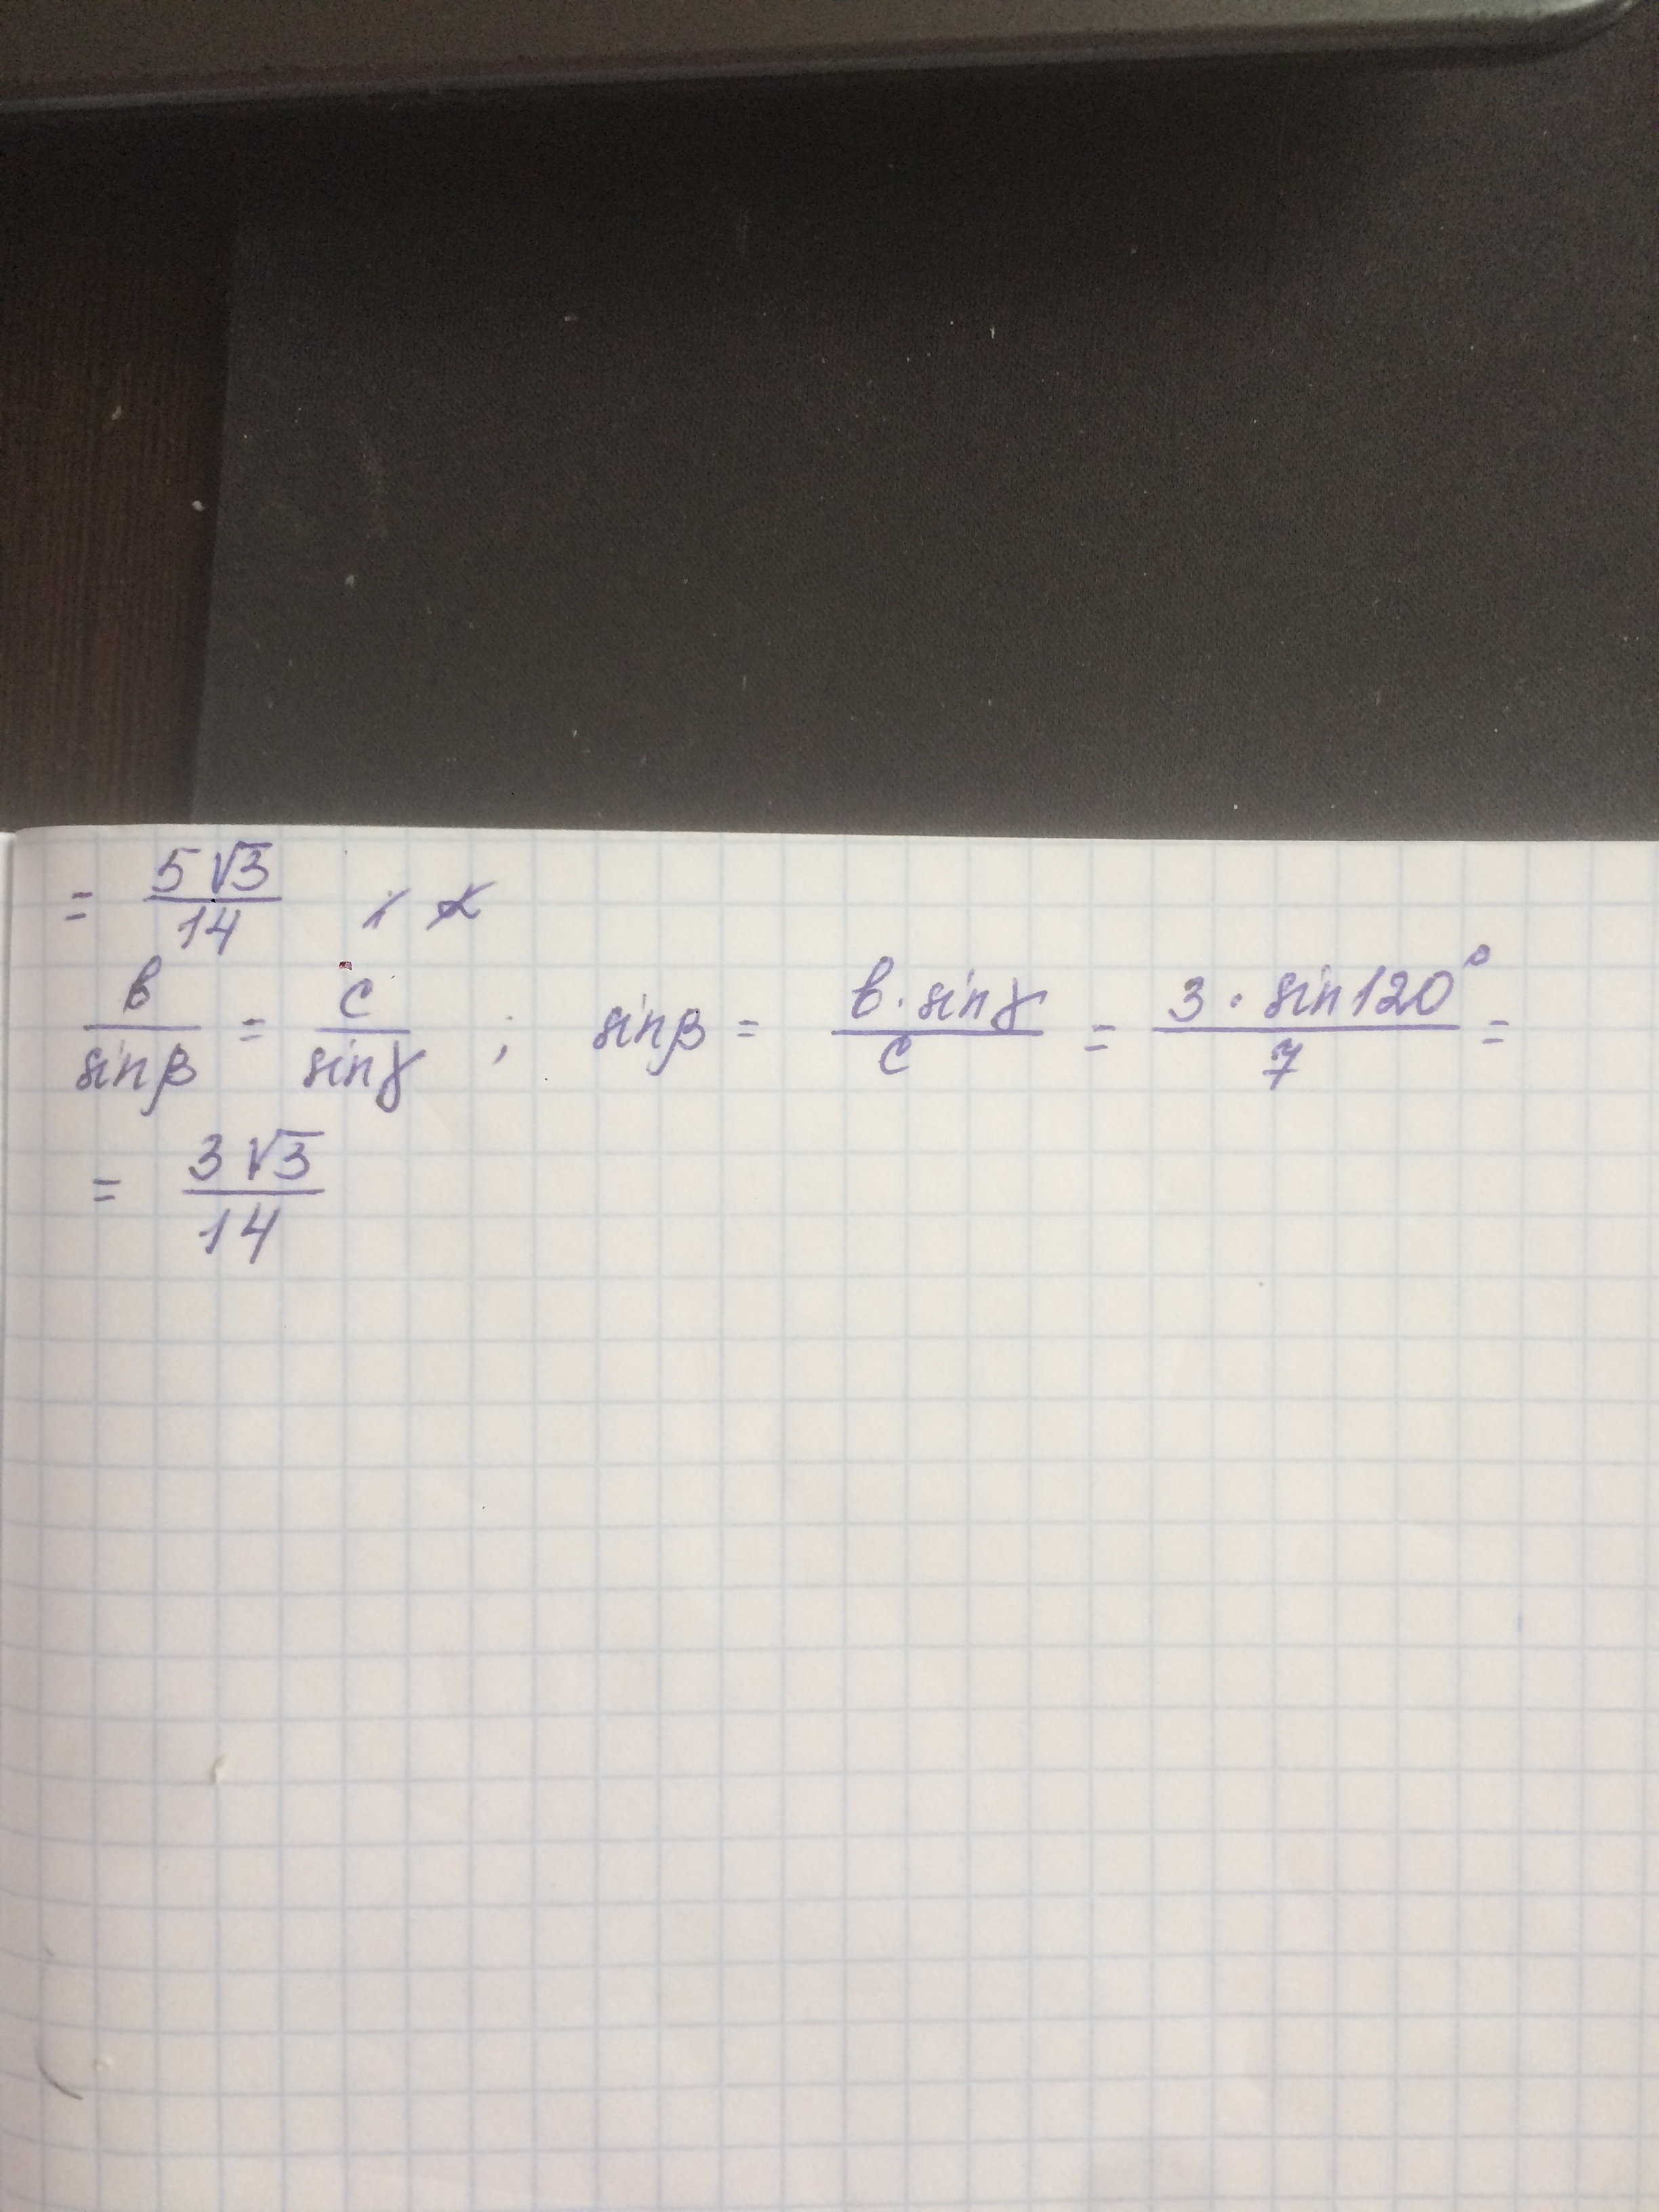 = 5√3/14
b/sinβ = c/sinγ ; sinβ = b·sinγ/c = 3·sin120°/7 =
= 3√3/14